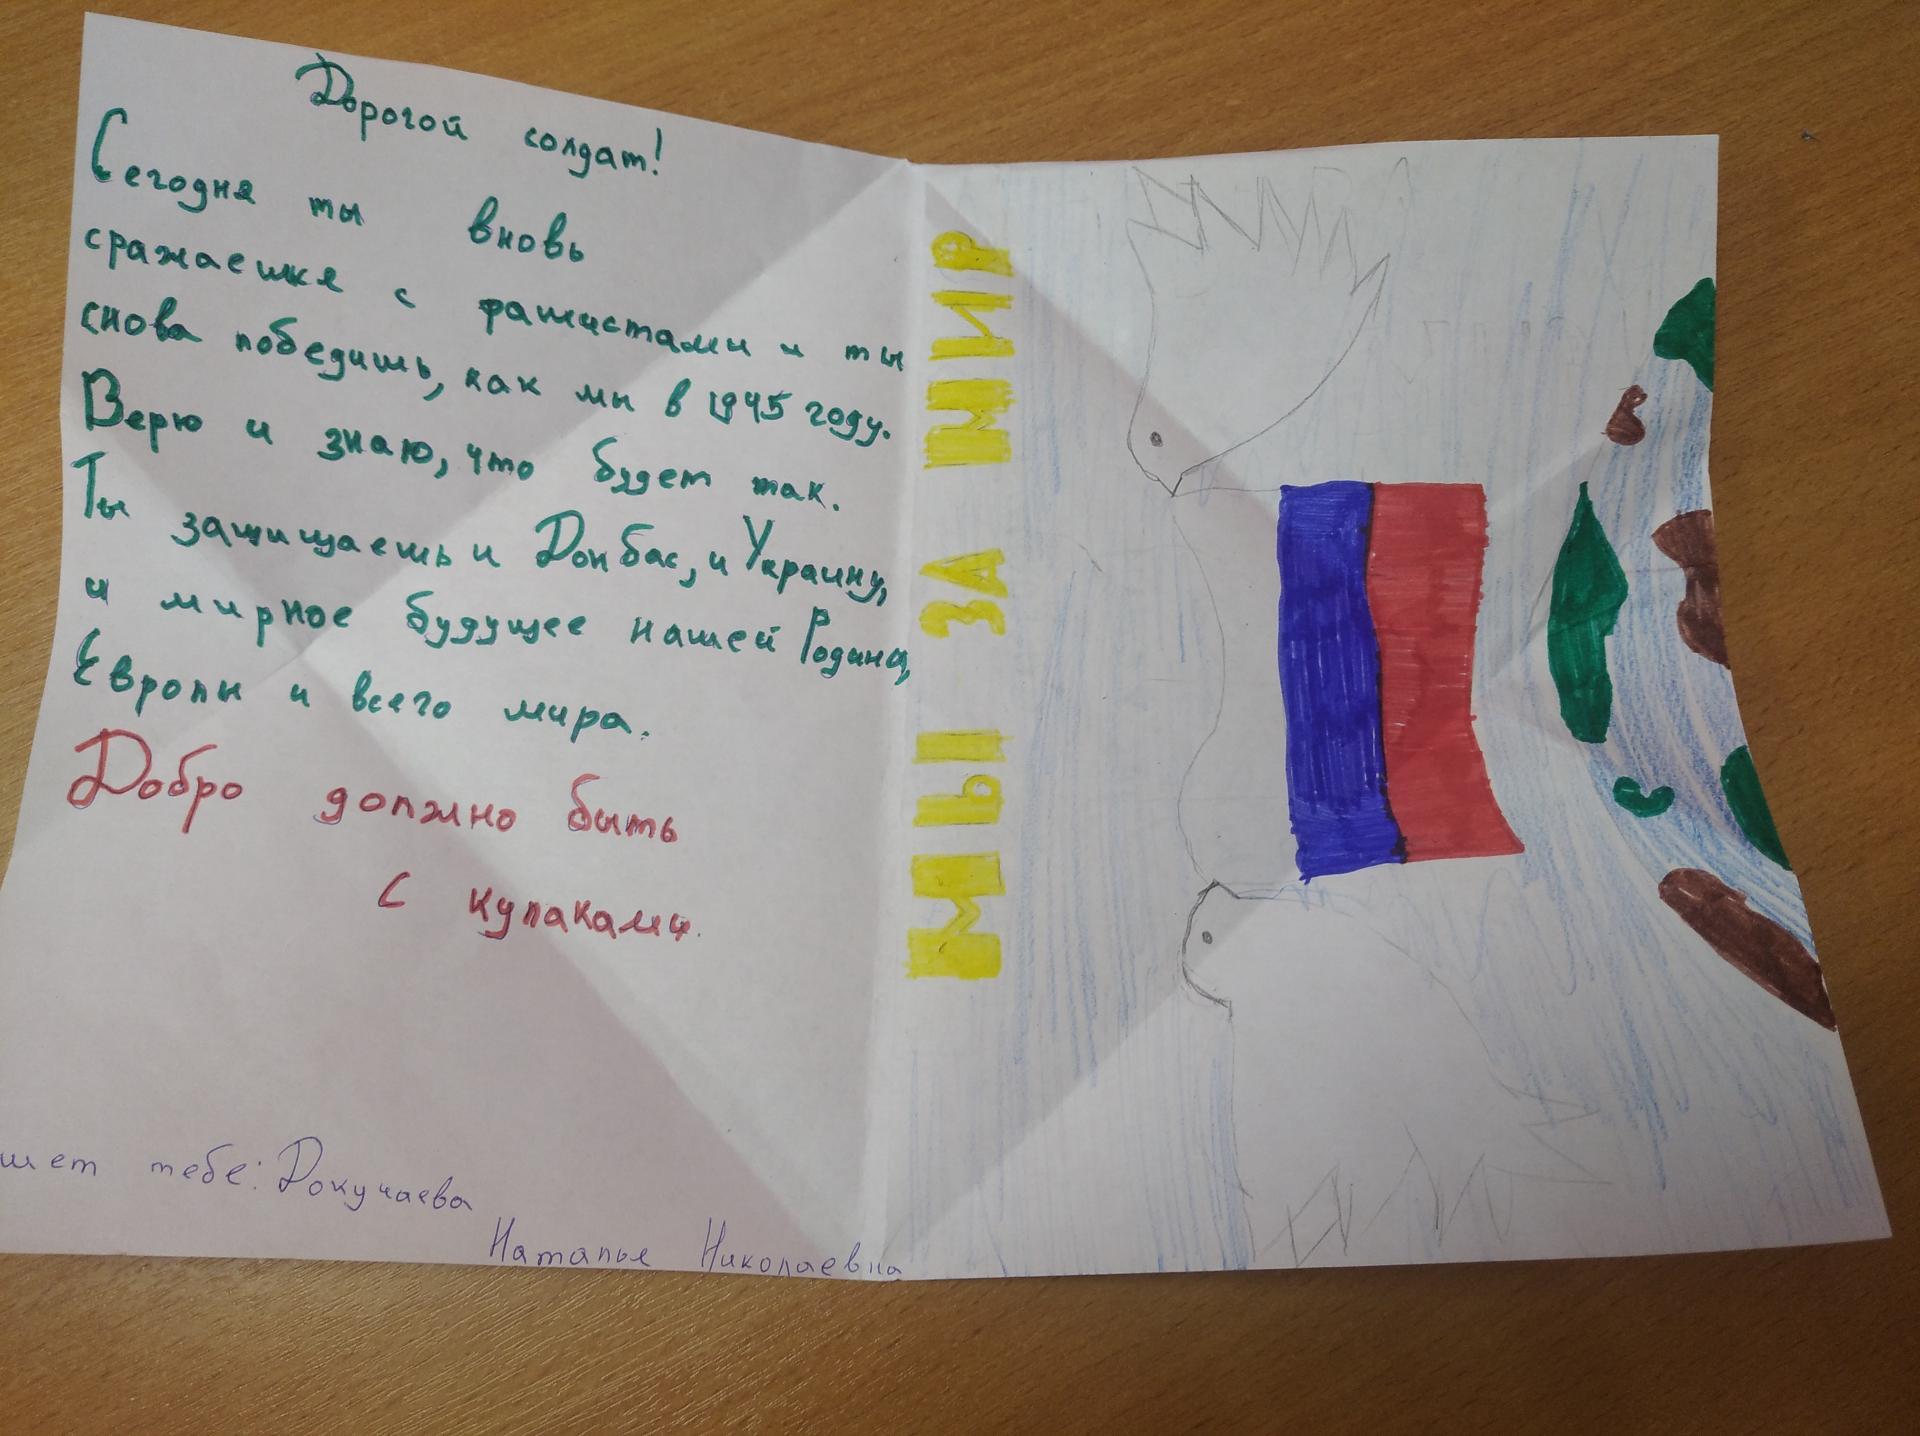 Дорогой солдат!
Сегодня ты вновь
сражаешься с фашистами и ты
снова победишь, как мы в 1945 году.
Верю и знаю, что будет так.
Ты защищаешь и Донбас, и Украину,
и мирное будущее нашей Родины,
Европы и всего мира.
Добро должно быть
с кулаками.
шет тебе: Докучаева
Наталья Николаевна
МЫ ЗА МИР